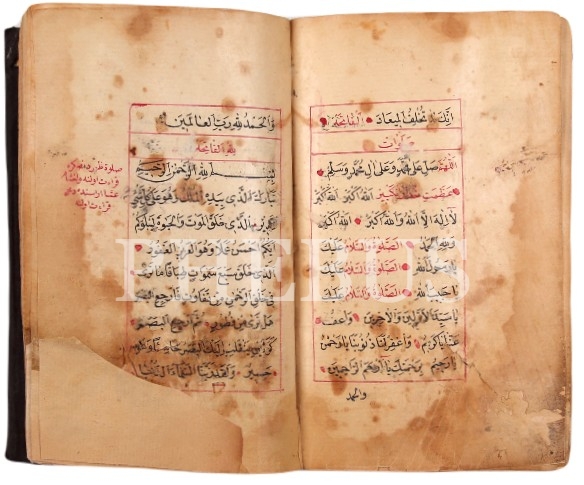 انك لا تخلف الميعاد الفاتحة
اللهم صل على محمد وعلى ال محمد وسلم
تكبير الله اكبر الله اكبر
لا اله الا الله والله اكبر الله اكبر
ولله الحمد الصلوة والسلام عليك
يا رسول الله الصلوة والسلام عليك
يا حبيب الله الصلوة والسلام عليك
يا سيد الاولين والاخرين واعف
عنا يا كريم واغفر لنا ذنوبنا يا رحمن
يا رحيم برحمتك يا ارحم الراحمين
والحمد
والحمد لله رب العالمين
الفاتحة
بسم الله الرحمن الرحيم
تبارك الذي بيده الملك وهو على كل شيء
قدير الذي خلق الموت والحيوة ليبلوكم
ايكم احسن عملا وهو العزيز الغفور
الذي خلق سبع سموات طباقا ما ترى
في خلق الرحمن من تفاوت فارجع البصر
هل ترى من فطور ثم ارجع البصر
كرتين ينقلب اليك البصر خاسئا وهو
حسير ولقد زينا السماء الدنيا
PHEBUS